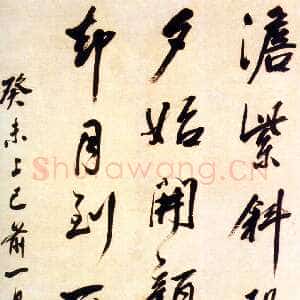 澹紫斜
夕始開顏
却月到
癸未上巳前一日
Shufawang.CN